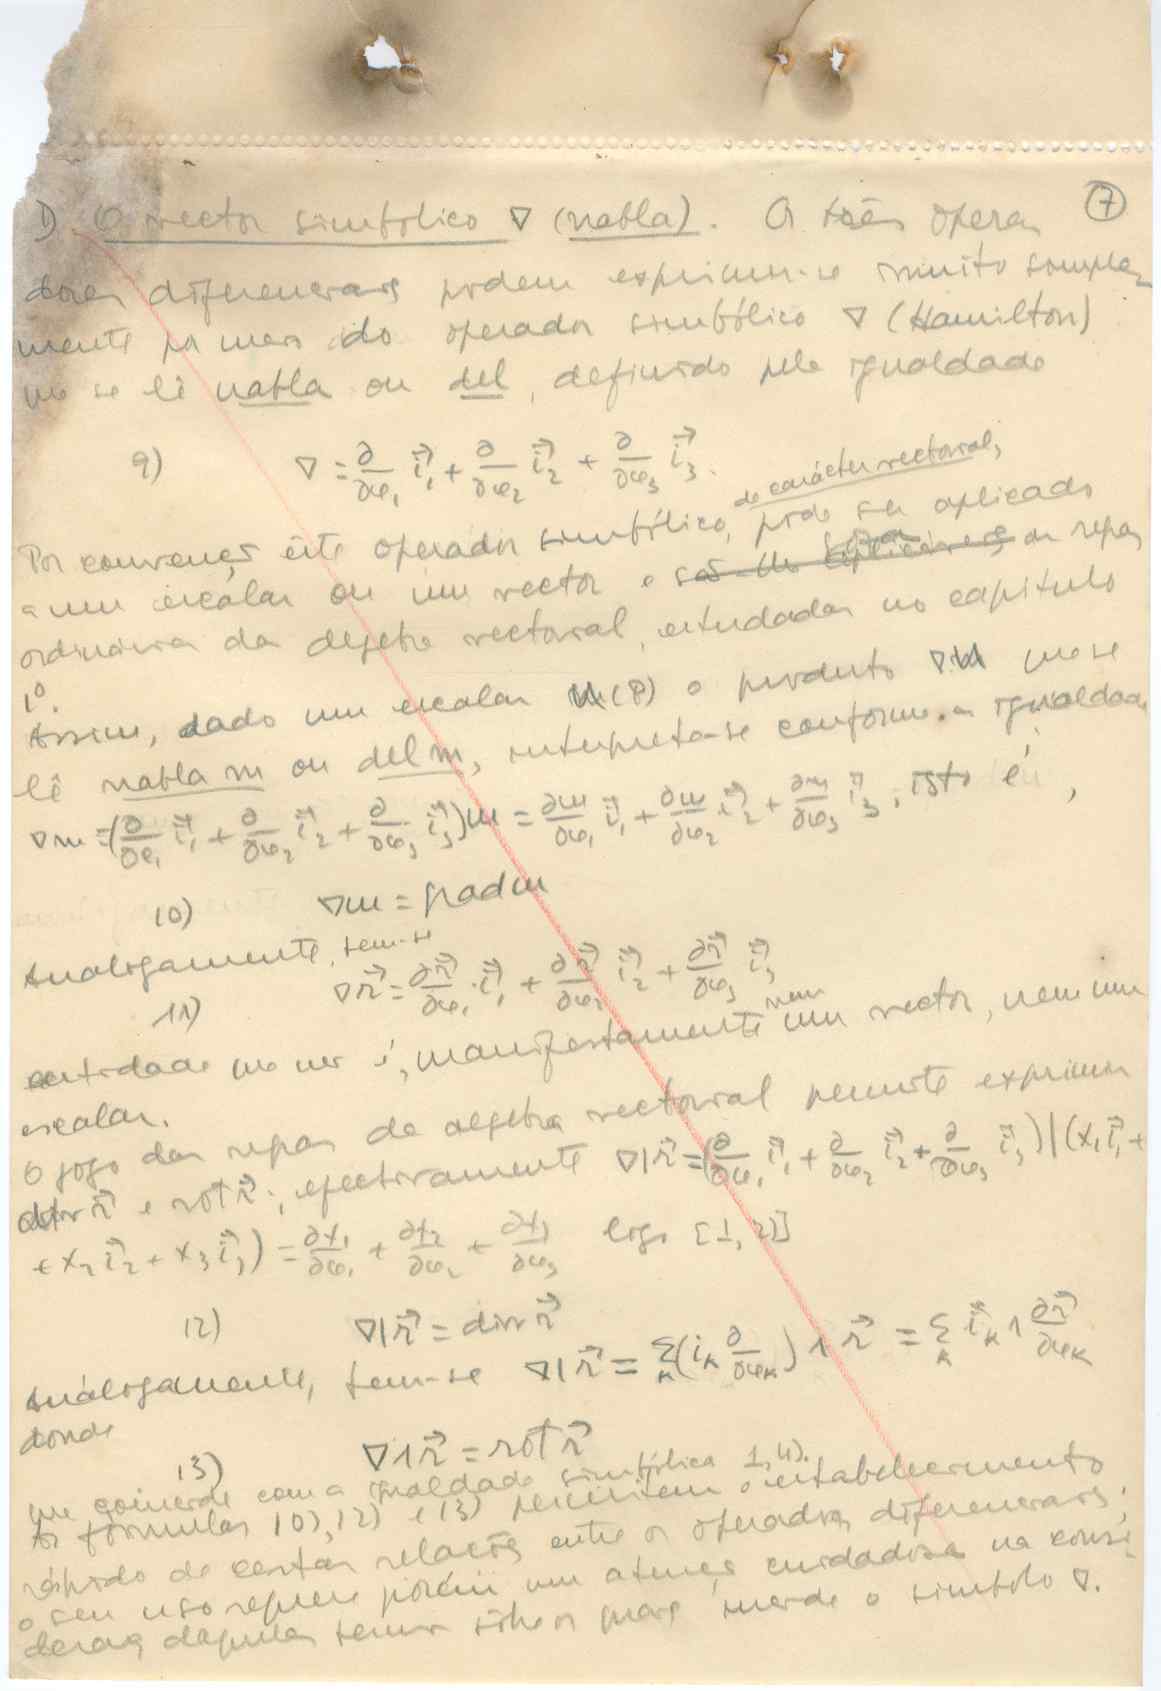 D) O vector simbólico ∇ (nabla). Os três opera- 7
dores diferenciais podem exprimir-se muito simples-
mente por meio do operador simbólico ∇ (Hamilton)
que se lê nabla ou del, definido pela igualdade
9) ∇ = ∂/∂φ₁ i⃗₁ + ∂/∂φ₂ i⃗₂ + ∂/∂φ₃ i⃗₃.
de carácter vectorial,
Por convenção êste operador simbólico, pode ser aplicado
a um escalar ou um vector e as regras
ordinárias da álgebra vectorial, estudadas no capítulo
1º.
Assim, dado um escalar m(P) o produto ∇.m que se
lê nabla m ou del m, interpreta-se conforme a igualdade
∇m = (∂/∂φ₁ i⃗₁ + ∂/∂φ₂ i⃗₂ + ∂/∂φ₃ i⃗₃)m = ∂m/∂φ₁ i⃗₁ + ∂m/∂φ₂ i⃗₂ + ∂m/∂φ₃ i⃗₃, isto é,
10) ∇m = grad m
Analogamente, tem-se
11) ∇r⃗ = ∂r⃗/∂φ₁ i⃗₁ + ∂r⃗/∂φ₂ i⃗₂ + ∂r⃗/∂φ₃ i⃗₃
entidade que não é, manifestamente nem um vector, nem um
escalar.
O jogo das regras da álgebra vectorial permite exprimir
div r⃗ e rot r⃗; efectivamente ∇|r⃗ = (∂/∂φ₁ i⃗₁ + ∂/∂φ₂ i⃗₂ + ∂/∂φ₃ i⃗₃)|(x₁i⃗₁ +
+ x₂i⃗₂ + x₃i⃗₃) = ∂x₁/∂φ₁ + ∂x₂/∂φ₂ + ∂x₃/∂φ₃ logo [1, 2)]
12) ∇|r⃗ = div r⃗
Análogamente, tem-se ∇|r⃗ = Σₖ(iₖ ∂/∂φₖ) ∧ r⃗ = Σₖ i⃗ₖ ∧ ∂r⃗/∂φₖ
donde
13) ∇∧r⃗ = rot r⃗
que coincide com a igualdade simbólica 1,4).
As fórmulas 10), 12) e 13) permitem o estabelecimento
rápido de certas relações entre os operadores diferenciais;
o seu uso requere porém uma atenção cuidadosa na consi-
deração daqueles termos sôbre os quais incide o símbolo ∇.